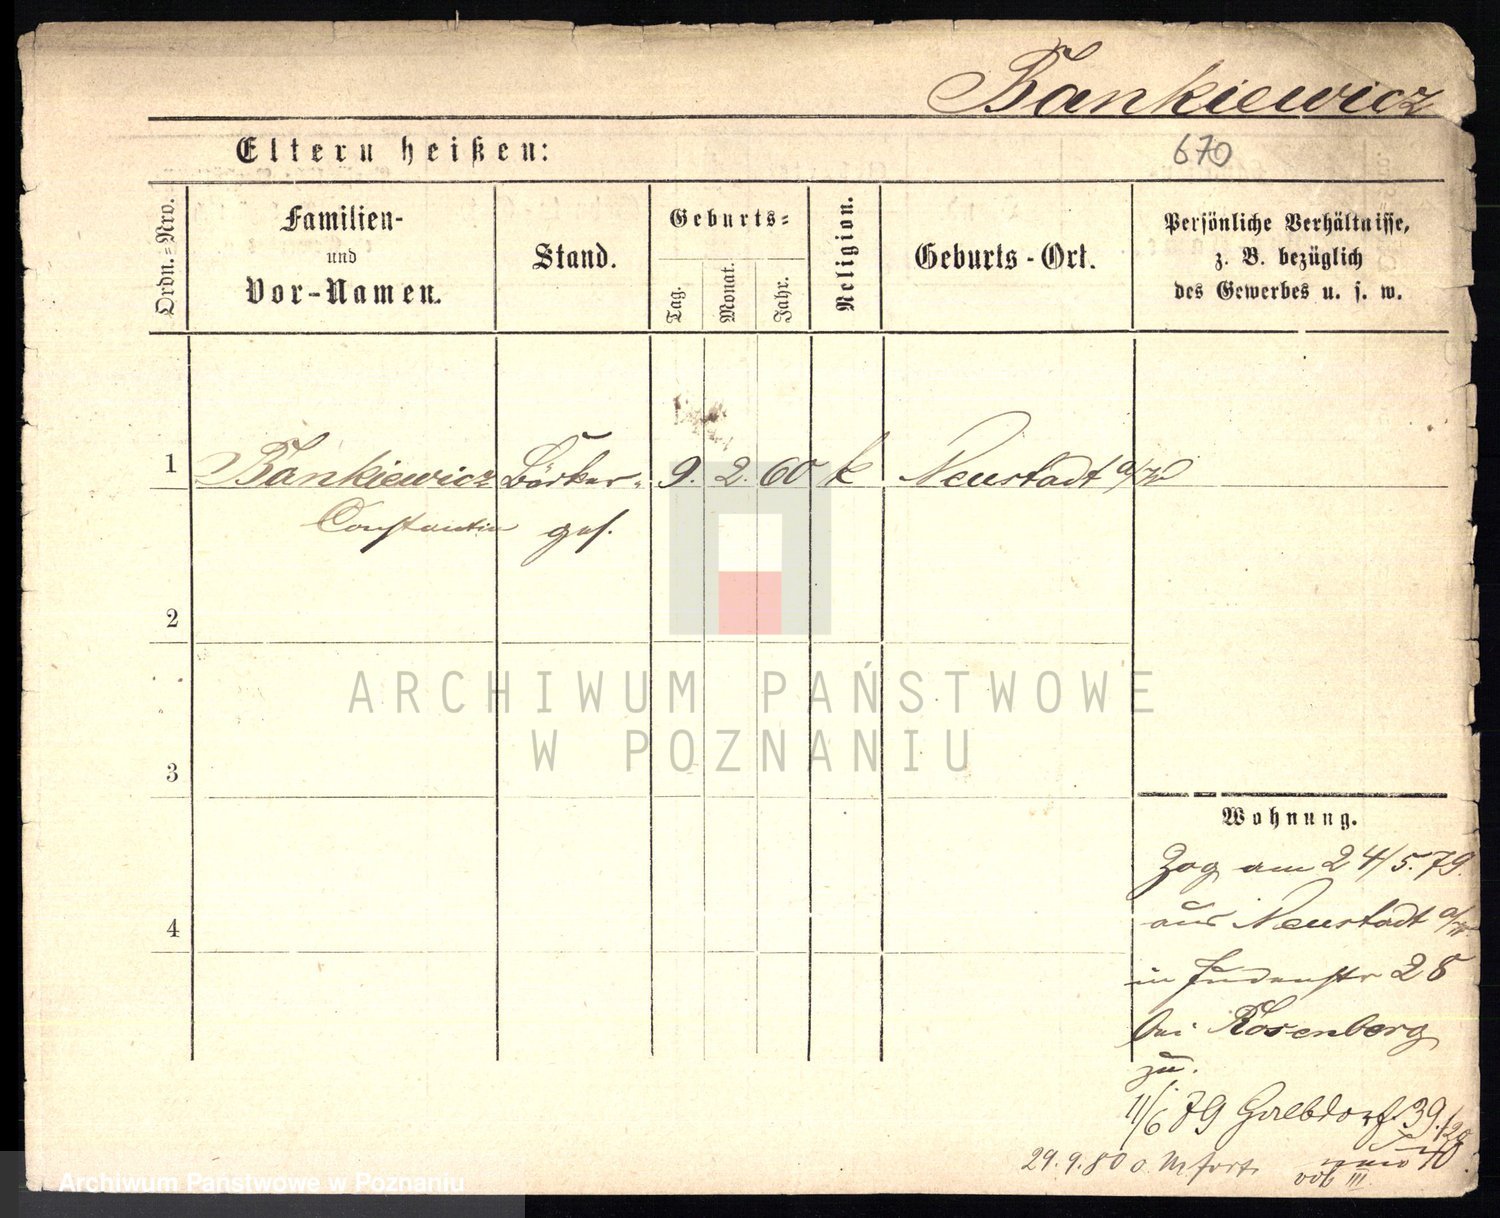 Bankiewicz
Eltern heißen:
670
Ordn.=Nro.
Familien-
und
Vor-Namen.
Stand.
Geburts=
Tag.
Monat.
Jahr.
Religion.
Geburts-Ort.
Persönliche Verhältnisse,
z. B. bezüglich
des Gewerbes u. s. w.
1 Bankiewicz 9. 2. 60 k Neustadt a/W
Constantin ges.
2
ARCHIWUM PAŃSTWOWE
W POZNANIU
3
Wohnung.
Zog am 24/5.79.
4
aus Neustadt a/W
in Judenstr 28
bei Rosenberg
zu.
11/6 79 Halbdorf. 39.
29.9.80 o. M fort.
vob III
Archiwum Państwowe w Poznaniu